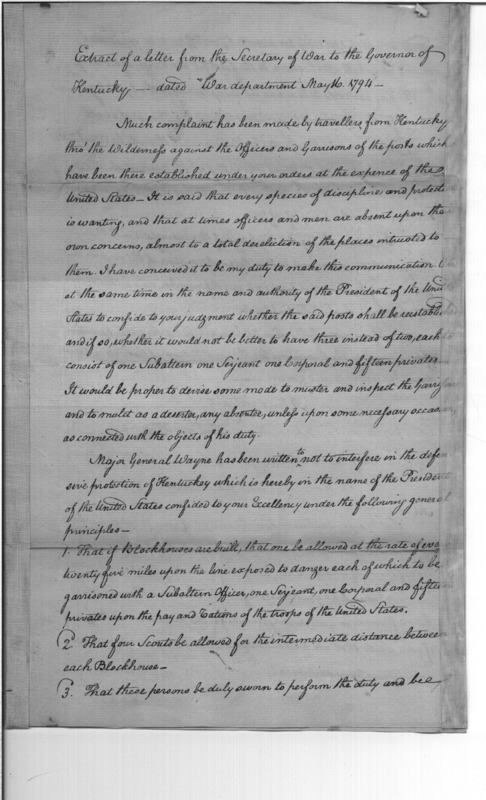 Extract of a letter from the Secretary of War to the Governor of
Kentucky — dated "War department May 16. 1794 —
Much complaint has been made by travellers from Kentucky
thro' the Wilderness against the Officers and Garrisons of the posts which
have been there established under your orders at the expence of the
United States — It is said that every species of discipline and protect
is wanting, and that at times officers and men are absent upon the
own concerns, almost to a total dereliction of the places intrusted to
them. I have conceived it to be my duty to make this communication
at the same time in the name and authority of the President of the Unit
States to confide to your judgment whether the said posts shall be reestabl
and if so, whether it would not be better to have three instead of two, each
consist of one Subaltern one Serjeant one Corporal and fifteen privates
It would be proper to devise some mode to muster and inspect the Garri
and to mulct as a deserter, any absentee, unless upon some necessary occas
as connected with the objects of his duty.
Major General Wayne has been written to not to interfere in the defen
sive protection of Kentuckey which is hereby in the name of the President
of the United States confided to your Excellency under the following general
principles —
1. That if Blockhouses are built, that one be allowed at the rate of every
twenty five miles upon the line exposed to danger each of which to be
garrisoned with a Subaltern Officer, one Serjeant, one Corporal and fifteen
privates upon the pay and rations of the troops of the United States.
2. That four Scouts be allowed for the intermediate distance betwee
each Blockhouse —
3. That these persons be duly sworn to perform the duty and be